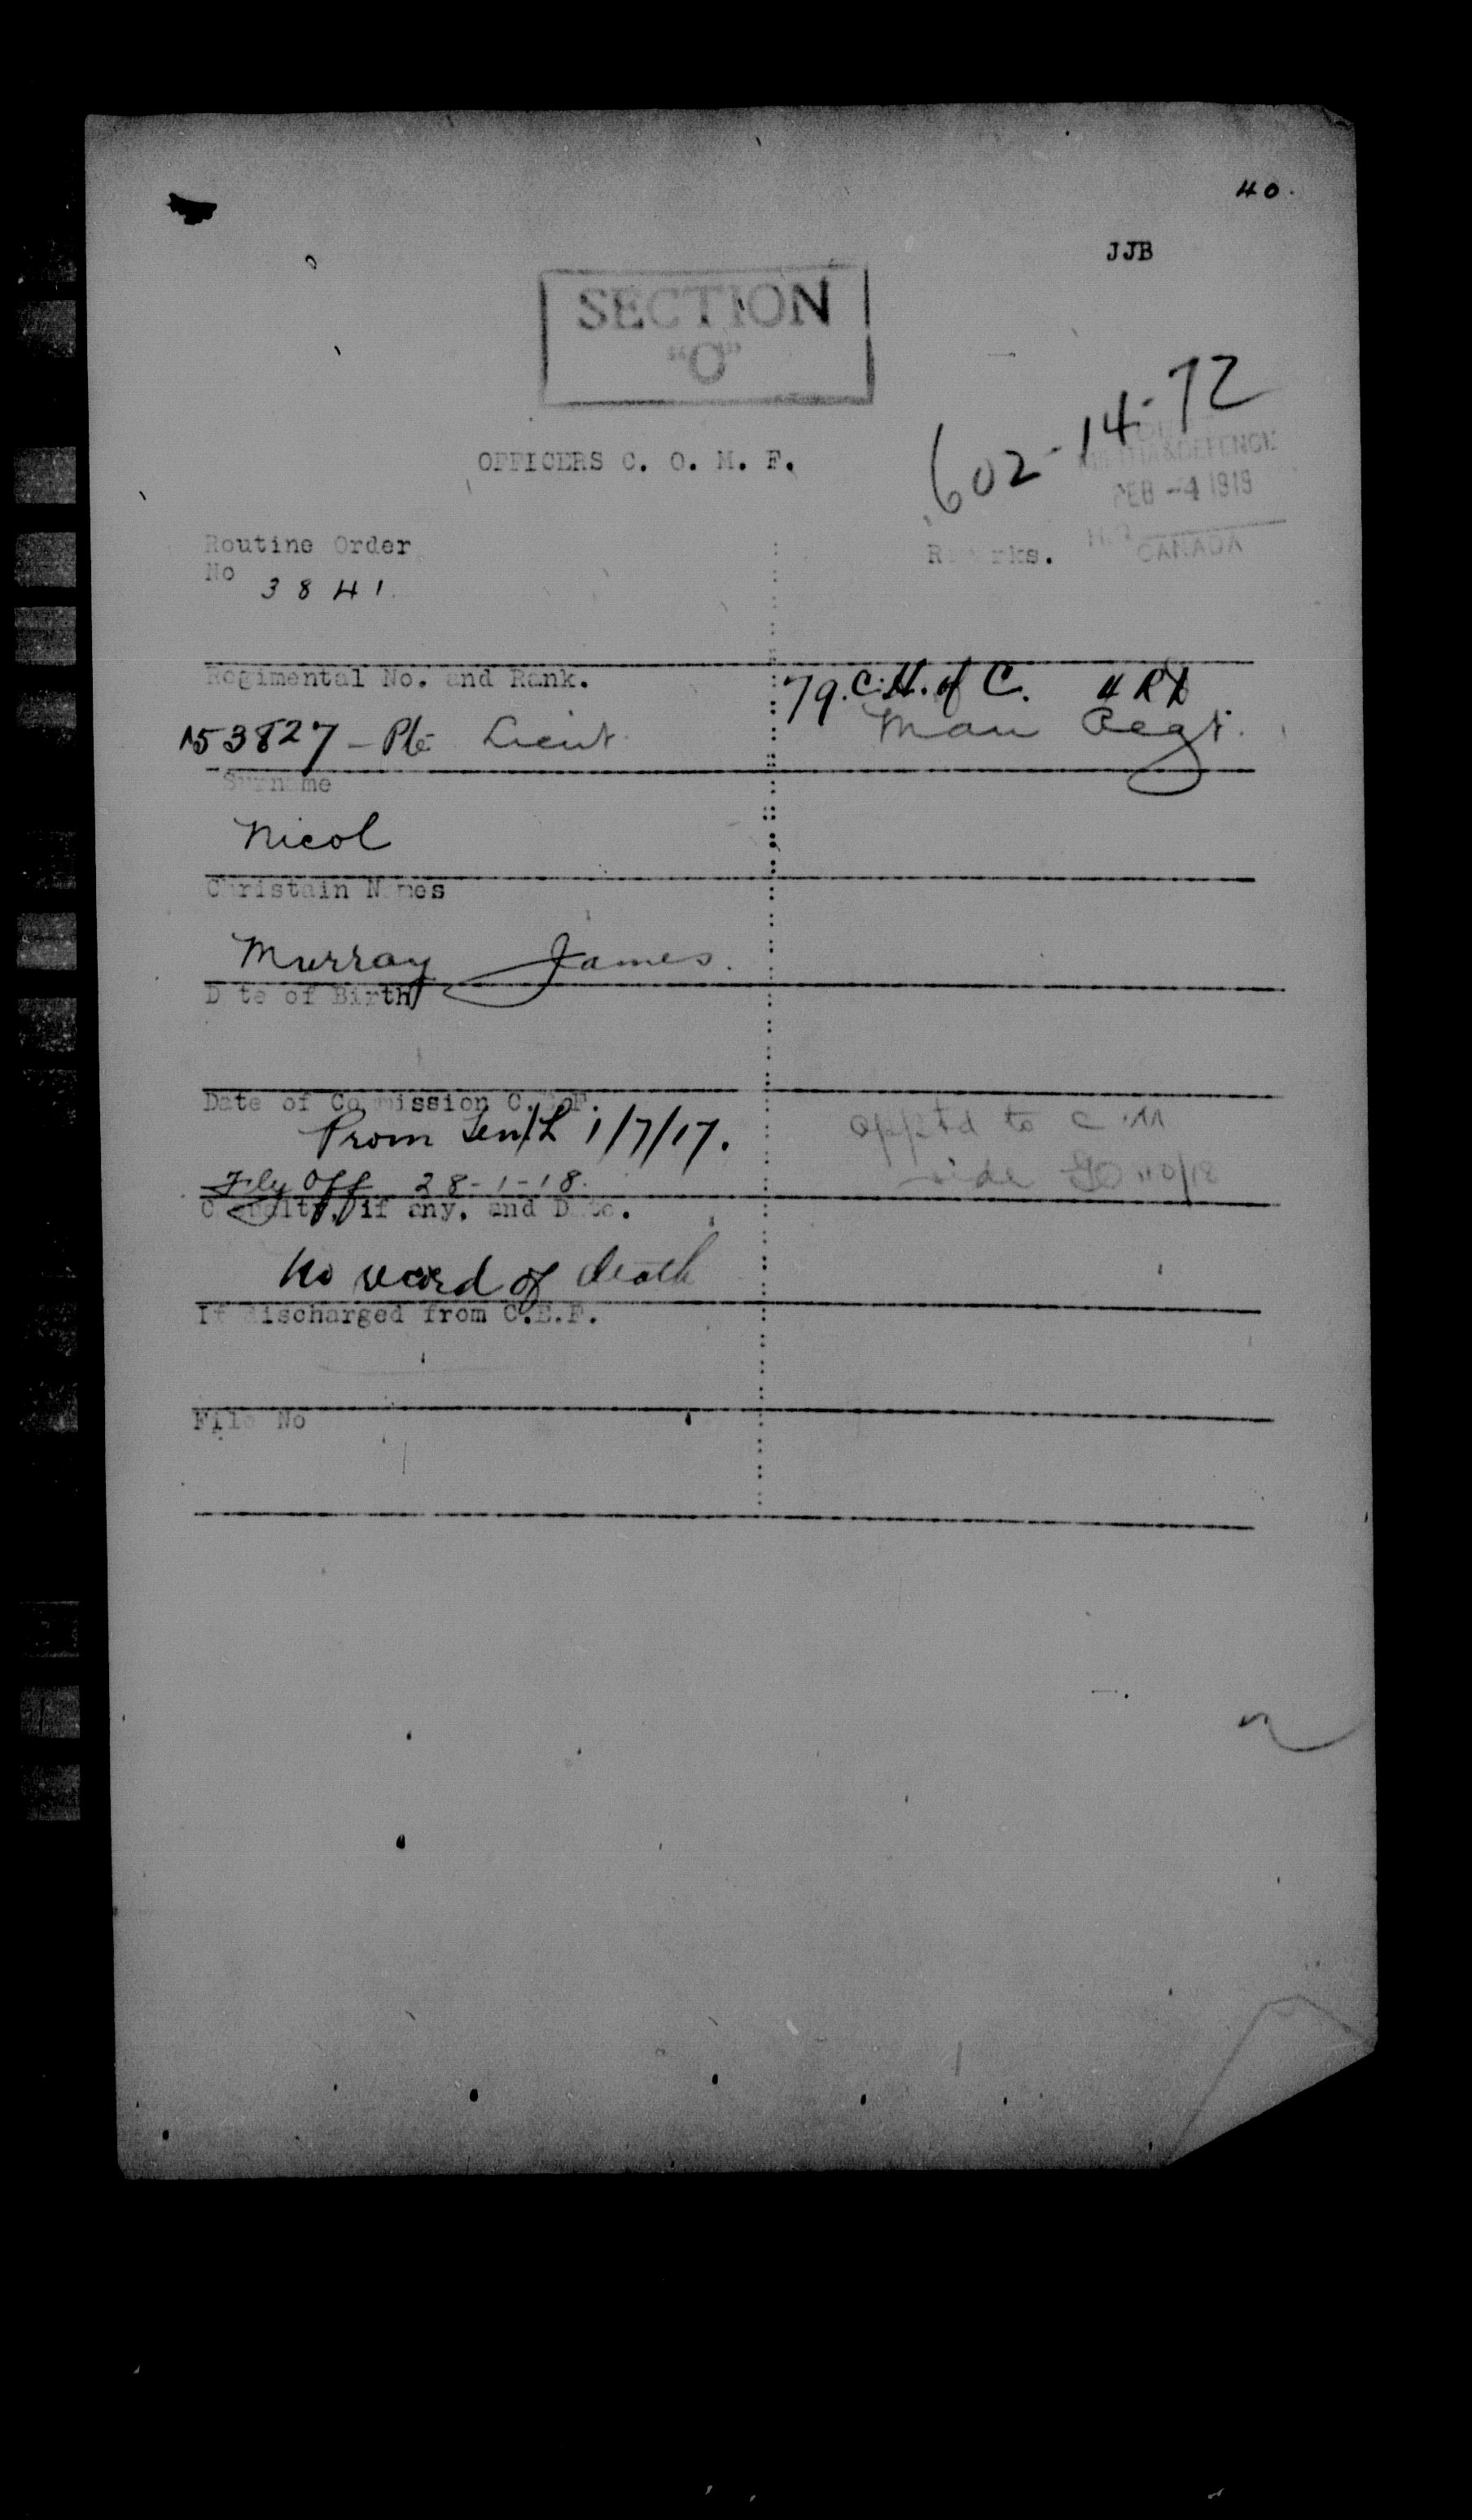 40.
JJB
SECTION
"O"
602-14-72
OFFICERS C. O. M. F.
MILITIA & DEFENCE
FEB -4 1919
H.Q.
CANADA
Routine Order
No 3841.
Remarks.
Regimental No. and Rank.
79. C.H. of C.
153827 - Pte Lieut.
Man Regt.
Surname
Nicol
Christain Names
Murray James.
Date of Birth
Date of Commission C.E.F.
Prom Ten/Lt 1/7/17.
appt'd to
Fly Off 28-1-18.
Casualty, if any, and Date.
No record of death
If discharged from C.E.F.
File No